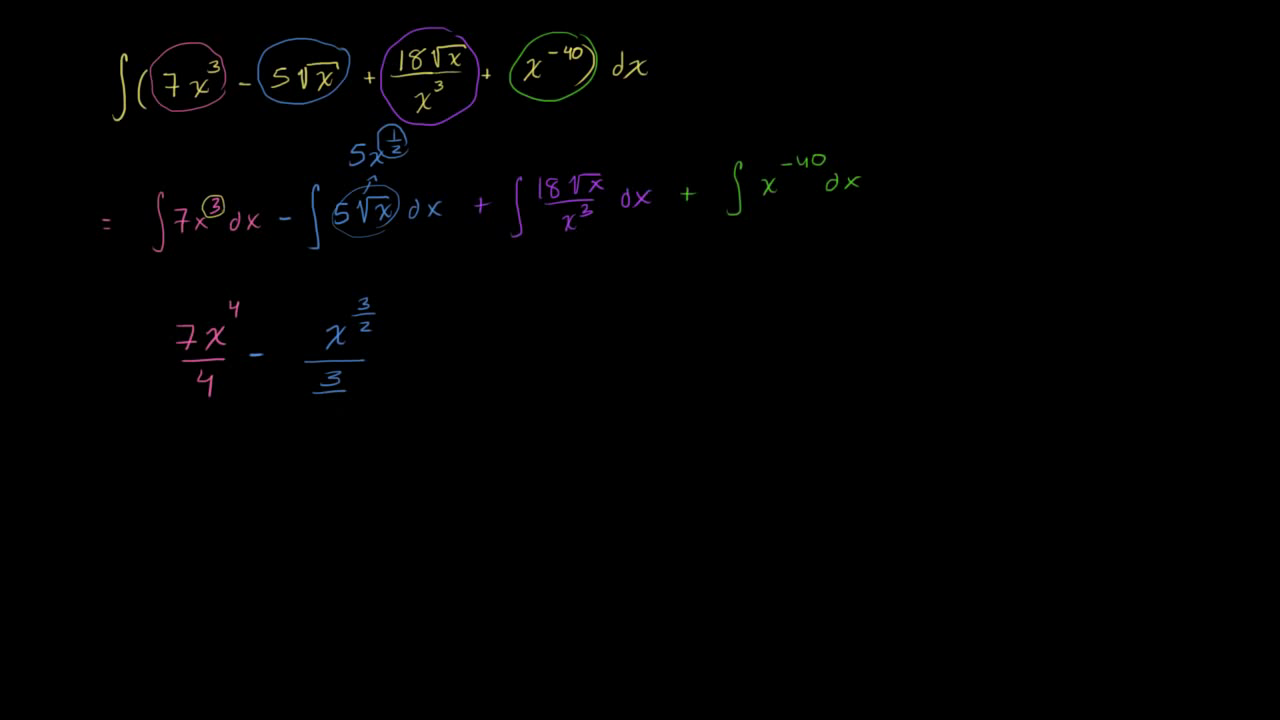 ∫(7x³ - 5√x + 18√x/x³ + x⁻⁴⁰) dx
5x^(1/2)
= ∫7x³dx - ∫5√x dx + ∫18√x/x³ dx + ∫x⁻⁴⁰dx
7x⁴/4 - x^(3/2)/3